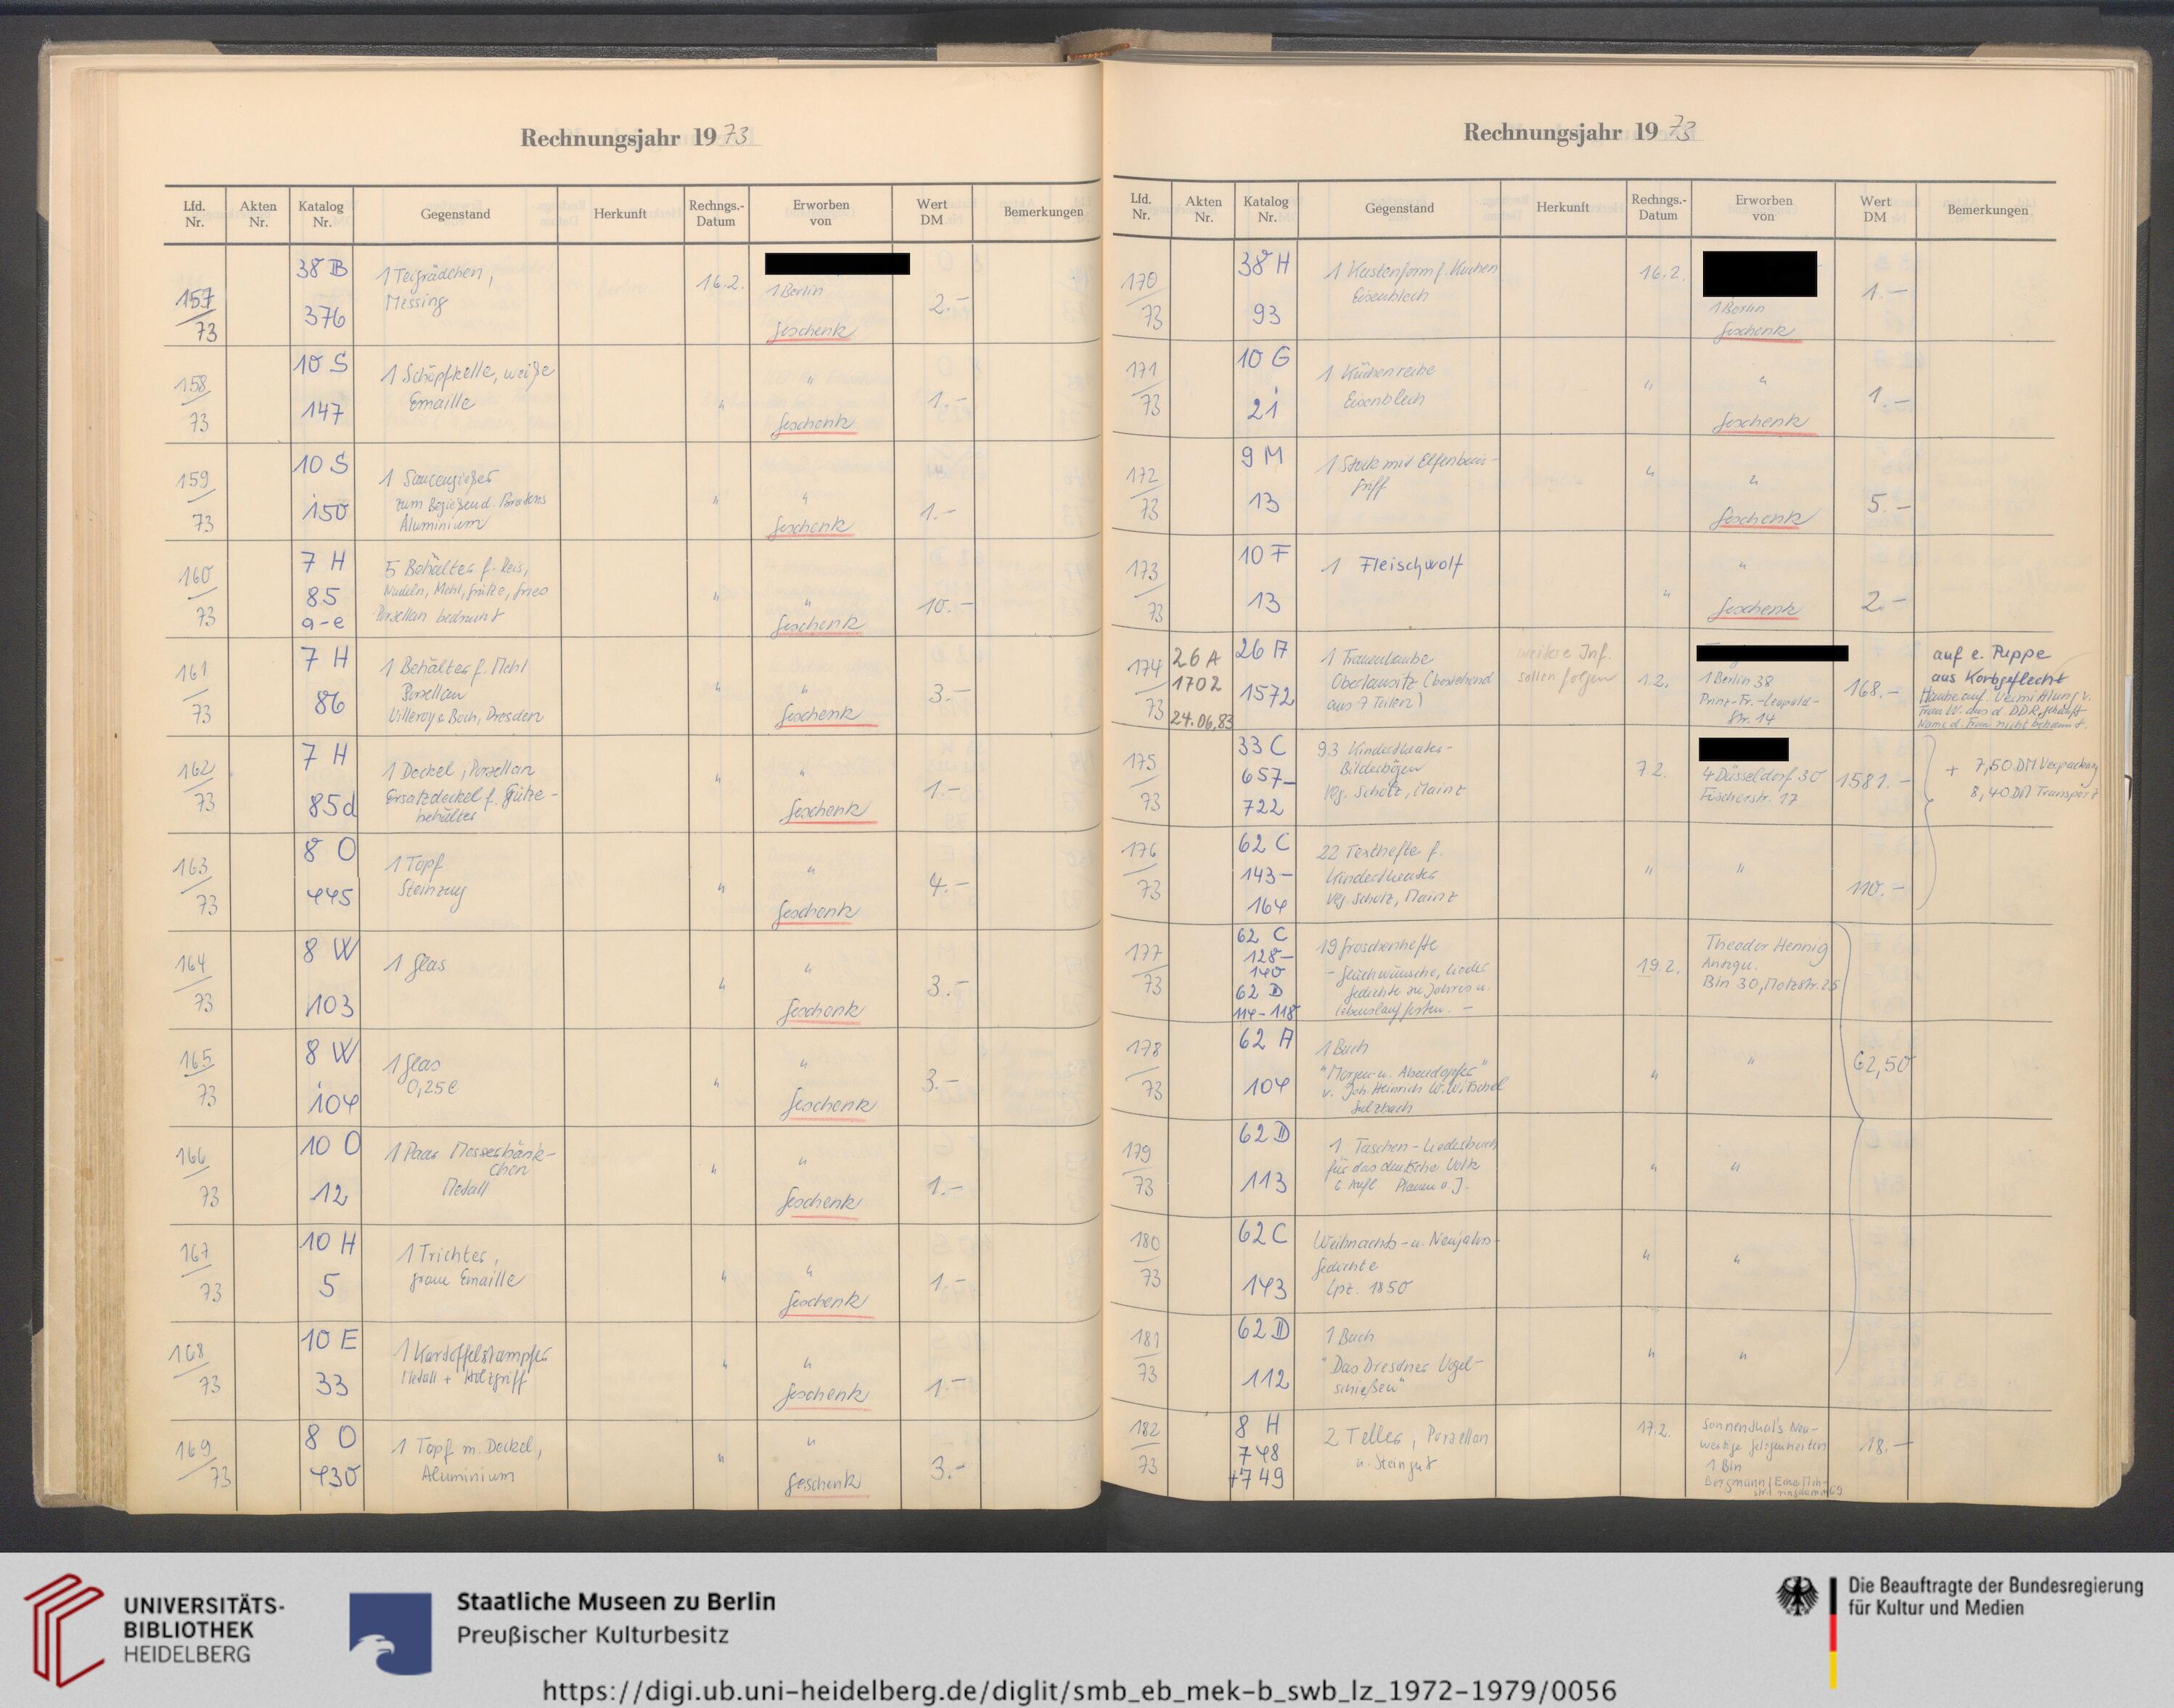 Rechnungsjahr 1973
Lfd. Nr. Akten Nr. Katalog Nr. Gegenstand Herkunft Rechngs.-Datum Erworben von Wert DM Bemerkungen
157/73 38 B 376 1 Teigrädchen, Messing 16.2. 1 Berlin Geschenk 2.-
158/73 10 S 147 1 Schöpfkelle, weiße Emaille " " Geschenk 1.-
159/73 10 S 150 1 Saucengießer zum Begießen d. Bratens Aluminium " " Geschenk 1.-
160/73 7 H 85 a-e 5 Behälter f. Reis, Nudeln, Mehl, Grütze, Gries Porzellan bedruckt " " Geschenk 10.-
161/73 7 H 86 1 Behälter f. Mehl Porzellan Villeroy & Boch, Dresden " " Geschenk 3.-
162/73 7 H 85d 1 Deckel, Porzellan Ersatzdeckel f. Grütze-behälter " " Geschenk 1.-
163/73 8 O 445 1 Topf Steinzeug " " Geschenk 4.-
164/73 8 W 103 1 Glas " " Geschenk 3.-
165/73 8 W 104 1 Glas 0,25 l " " Geschenk 3.-
166/73 10 O 12 1 Paar Messerbänk-chen Metall " " Geschenk 1.-
167/73 10 H 5 1 Trichter, graue Emaille " " Geschenk 1.-
168/73 10 E 33 1 Kartoffelstampfer Metall + Holzgriff " " Geschenk 1.-
169/73 8 O 430 1 Topf m. Deckel, Aluminium " " Geschenk 3.-
Rechnungsjahr 1973
Lfd. Nr. Akten Nr. Katalog Nr. Gegenstand Herkunft Rechngs.-Datum Erworben von Wert DM Bemerkungen
170/73 38 H 93 1 Kastenform f. Kuchen Eisenblech 16.2. 1 Berlin Geschenk 1.-
171/73 10 G 21 1 Küchenreibe Eisenblech " " Geschenk 1.-
172/73 9 M 13 1 Stock mit Elfenbein-griff " " Geschenk 5.-
173/73 10 F 13 1 Fleischwolf " " Geschenk 2.-
174/73 26 A 1702 24.06.83 26 A 1572 1 Frauenhaube Oberlausitz (bestehend aus 7 Teilen) weitere Inf. sollen folgen 1.2. 1 Berlin 38 Prinz-Fr.-Leopold-Str. 14 168.- auf e. Puppe aus Korbgeflecht Haube auf Vermittlung v. Frau W. aus d. DDR Name d. Frau nicht bekannt.
175/73 33 C 657-722 93 Kindertheater-Bilderbögen Vlg. Scholz, Mainz 7.2. 4 Düsseldorf 30 Fischerstr. 17 1581.- + 7,50 DM Verpackung 8,40 DM Transport
176/73 62 C 143-164 22 Texthefte f. Kindertheater Vlg. Scholz, Mainz " " 110.-
177/73 62 C 128-140 62 D 114-118 19 Groschenhefte - Glückwünsche, Lieder Gedichte zu Jahres u. Lebenslauffesten. - 19.2. Theodor Hennig Antiqu. Bln 30, Motzstr. 25
178/73 62 A 104 1 Buch "Morgen- u. Abendopfer" v. Joh. Heinrich W. Witschel Sulzbach " " 62,50
179/73 62 D 113 1 Taschen-Liederbuch für das deutsche Volk 6. Aufl. Plauen o. J. " "
180/73 62 C 143 Weihnachts- u. Neujahrs-Gedichte Lpz. 1850 " "
181/73 62 D 112 1 Buch "Das Dresdner Vogel-schießen" " "
182/73 8 H 748 +749 2 Teller, Porzellan u. Steingut 17.2. Sonnenthal's Neu-wertige Gelegenheiten 1 Bln 18.-
UNIVERSITÄTS-
BIBLIOTHEK
HEIDELBERG
Staatliche Museen zu Berlin
Preußischer Kulturbesitz
Die Beauftragte der Bundesregierung
für Kultur und Medien
https://digi.ub.uni-heidelberg.de/diglit/smb_eb_mek-b_swb_lz_1972-1979/0056